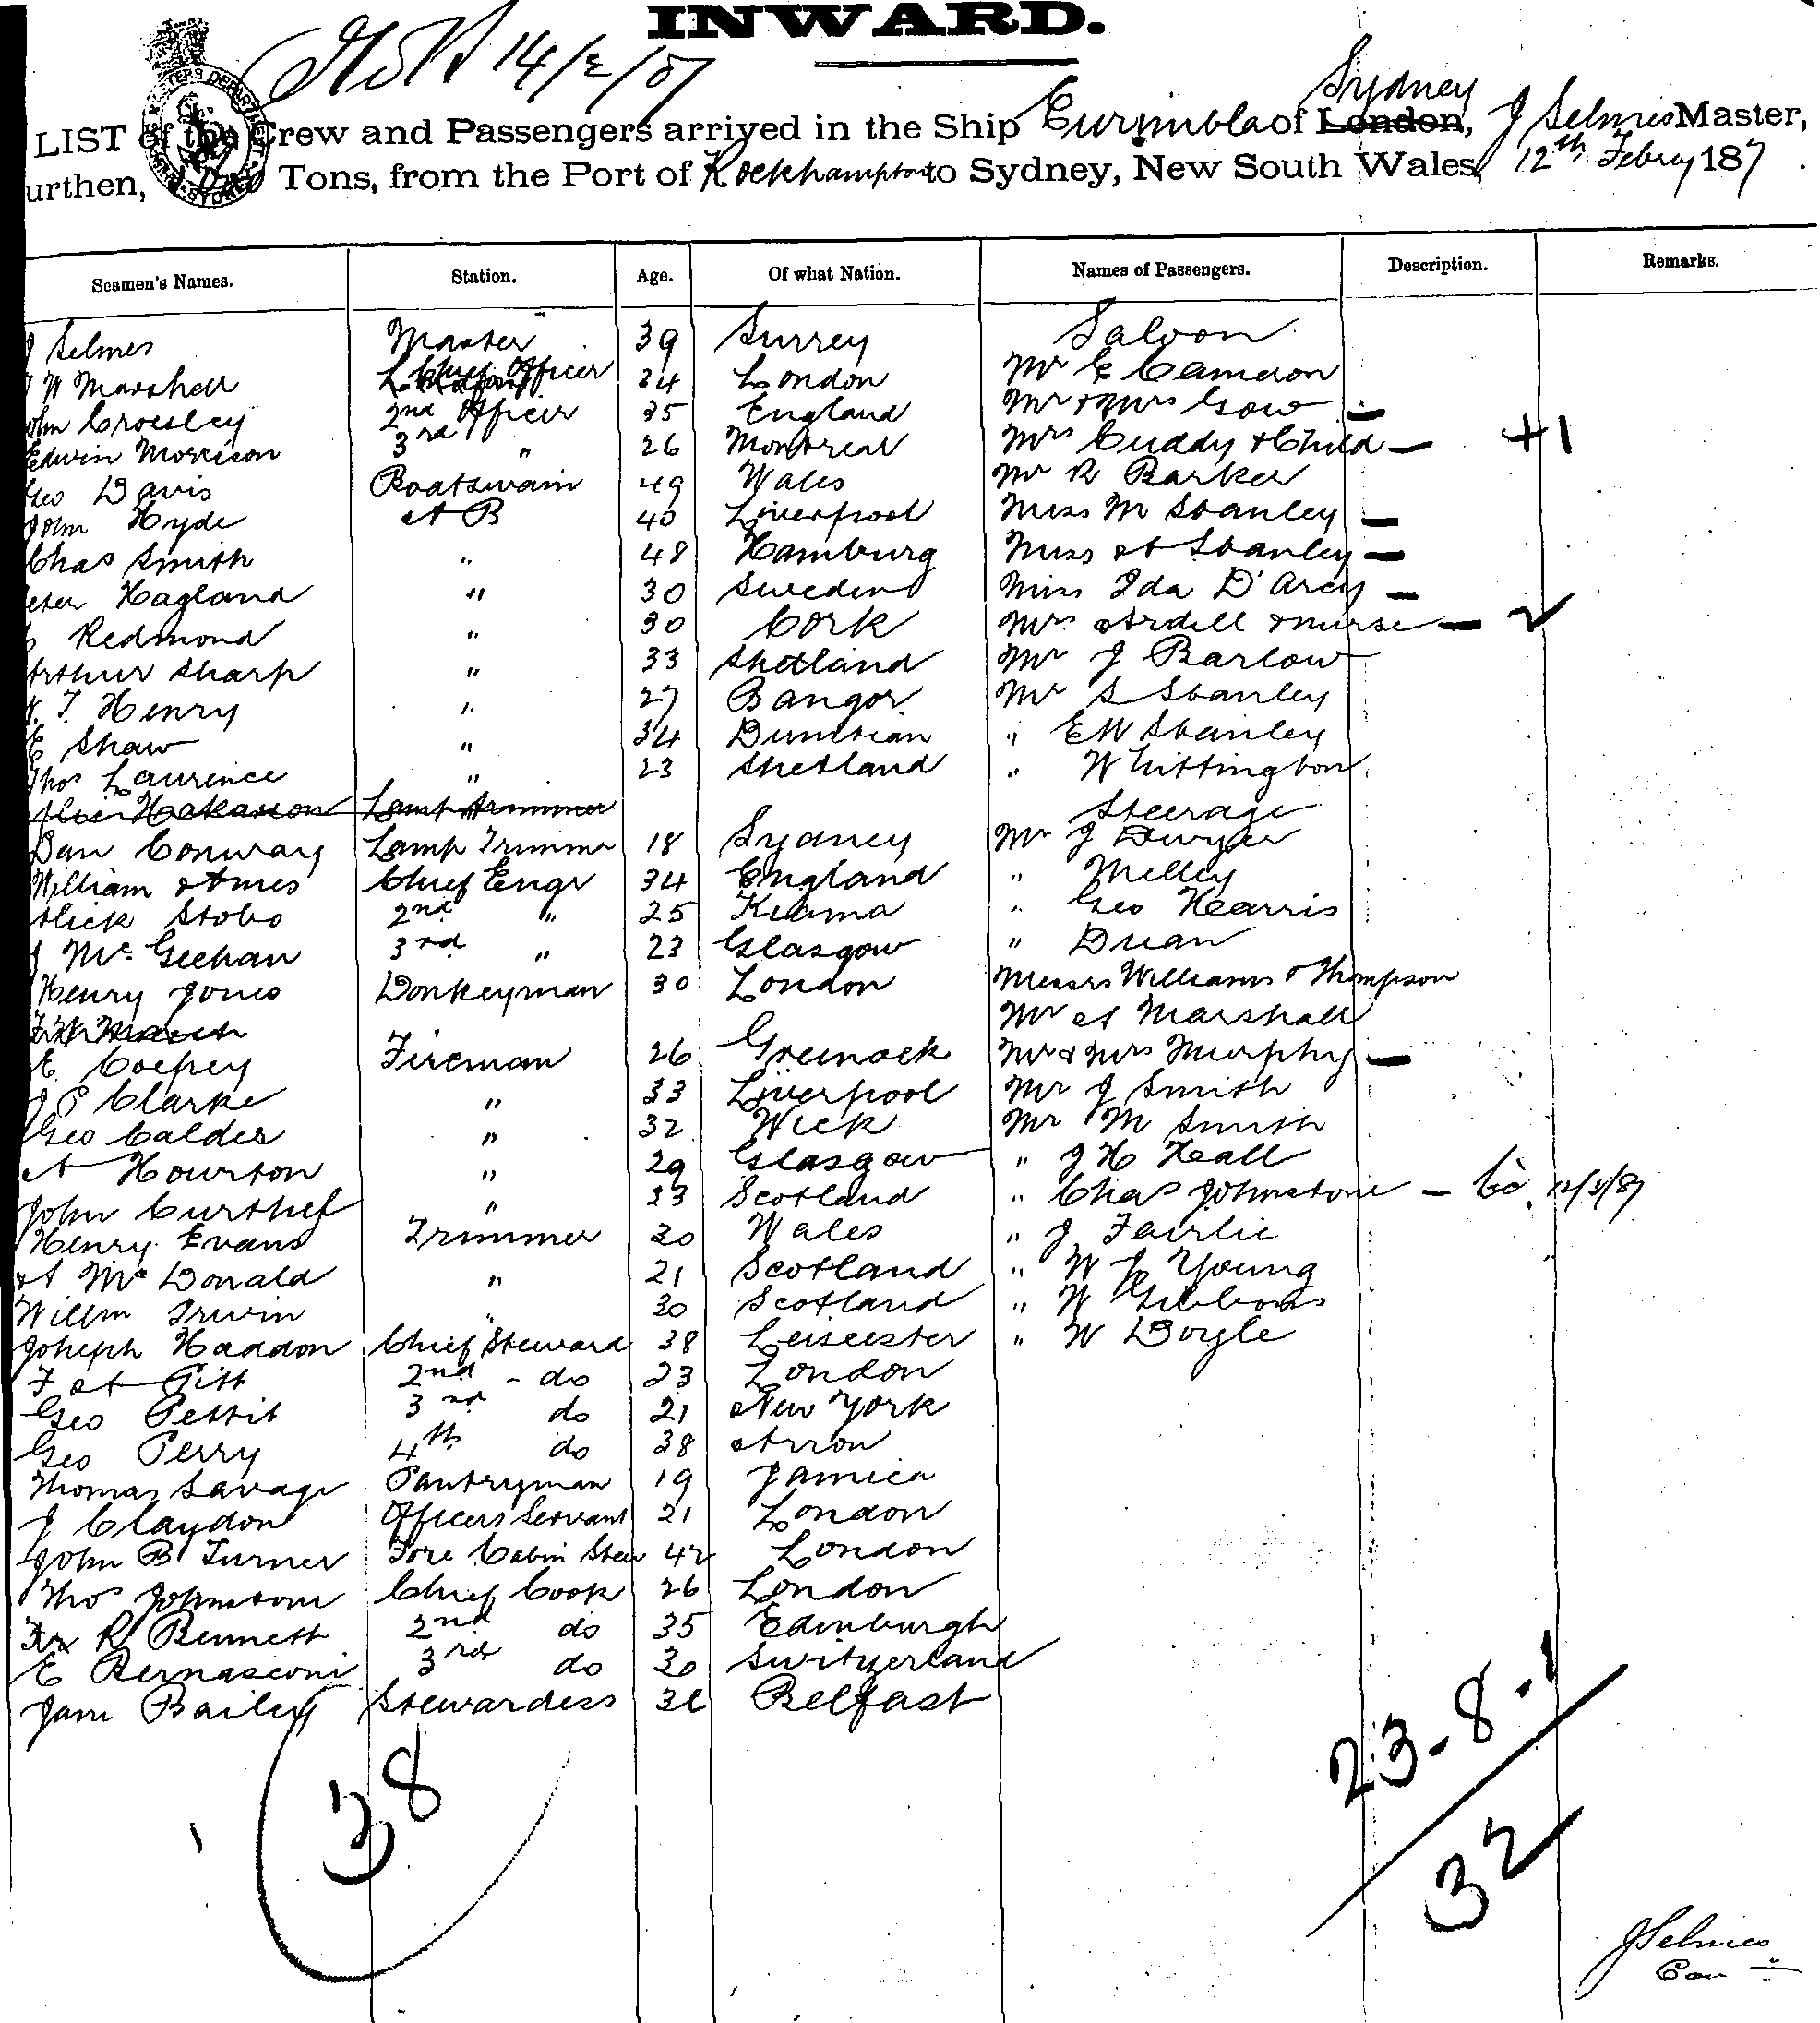 INWARD.
14/2/87
Sydney
LIST of the Crew and Passengers arrived in the Ship Eurimbla of London, J Selmes Master,
urthen, Tons, from the Port of Rockhampton to Sydney, New South Wales, 12th Febry 1887.
Seamen's Names. Station. Age. Of what Nation. Names of Passengers. Description. Remarks.
J Selmes Master 39 Surrey Saloon
W Marshall Chief Officer 34 London Mr E Cameron
John Crossley 2nd Officer 35 England Mr & Mrs Gow —
Edwin Morrison 3rd " 26 Montreal Mrs Cuddy & Child — +1
Geo Davis Boatswain 49 Wales Mr R Barker
John Hyde A B 40 Liverpool Miss M Stanley —
Chas Smith " 48 Hamburg Miss A Stanley —
eter Hagland " 30 Sweden Miss Ida D'Arcy —
Redmond " 30 Cork Mrs Ardell & nurse —
Arthur Sharp " 33 Shetland Mr J Barlow
T. Henry " 27 Bangor Mr S Stanley
E Shaw " 34 " E W Stanley
Thos Laurence " 23 Shetland " Whittington
Lamp Trimmer Steerage
Dan Conway Lamp Trimmr 18 Sydney Mr J Dwyer
William Ames Chief Engr 34 England " Melley
Alick Stobo 2nd " 25 Kiama " Geo Harris
J McGeehan 3rd " 23 Glasgow " Duan
Henry Jones Donkeyman 30 London Messrs Williams & Thompson
Mr A Marshall
E. Coffey Fireman 26 Greenock Mr & Mrs Murphy —
J P Clarke " 33 Liverpool Mr J Smith
Geo Calder " 32 Wick Mr M Smith
A Hourston " 29 Glasgow " J H Hall
John " 23 Scotland " Chas Johnstone — 12/3/87
Henry Evans Trimmer 30 Wales " J Fairlie
A McDonald " 21 Scotland " W J Young
Willm Irwin " 30 Scotland " W Gibbons
Joheph Haddon Chief Steward 38 Leiscester " W Doyle
F A Pitt 2nd - do 23 London
Geo Pettit 3rd do 21 New York
Geo Perry 4th do 38 Arron
Thomas Savage Pantryman 19 Jamica
J Claydon Officers Servant 21 London
John B Turner Fore Cabin Stew 42 London
Thos Johnstone Chief Cook 26 London
R Bennett 2nd do 35 Edinburgh
E Bernasconi 3rd do 30 Switzerland
Jane Bailey Stewardess 36 Belfast
38
23-8.1
32
J Selmes